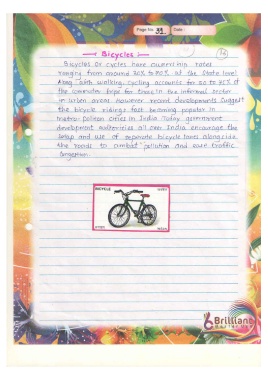 Page No. 32 Date :
Bicycles
Bicycles or cycles have ownership rates
ranging from around 30% to 70% at the state level
Along with walking, cycling accounts for 50 to 75% of
the commuter trips for those in the informal sector
in urban areas. However recent developments suggest
the bicycle ridings fast becoming popular in
metro polison cities in India Today, government
development authorities all over India encourage the
setup and use of separate bicycle lanes alongside
the roads to combat pollution and ease traffic
congestion.
BICYCLE
Brilliant